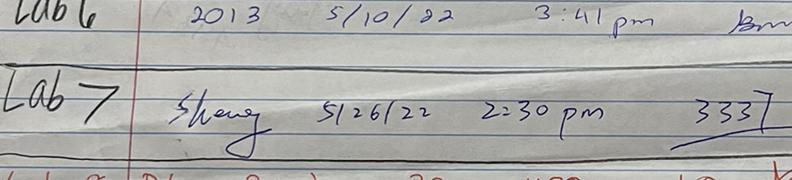 Lab 6 2013 5/10/22 3:41 pm
Lab 7 Sheng 5/26/22 2:30 pm 3337